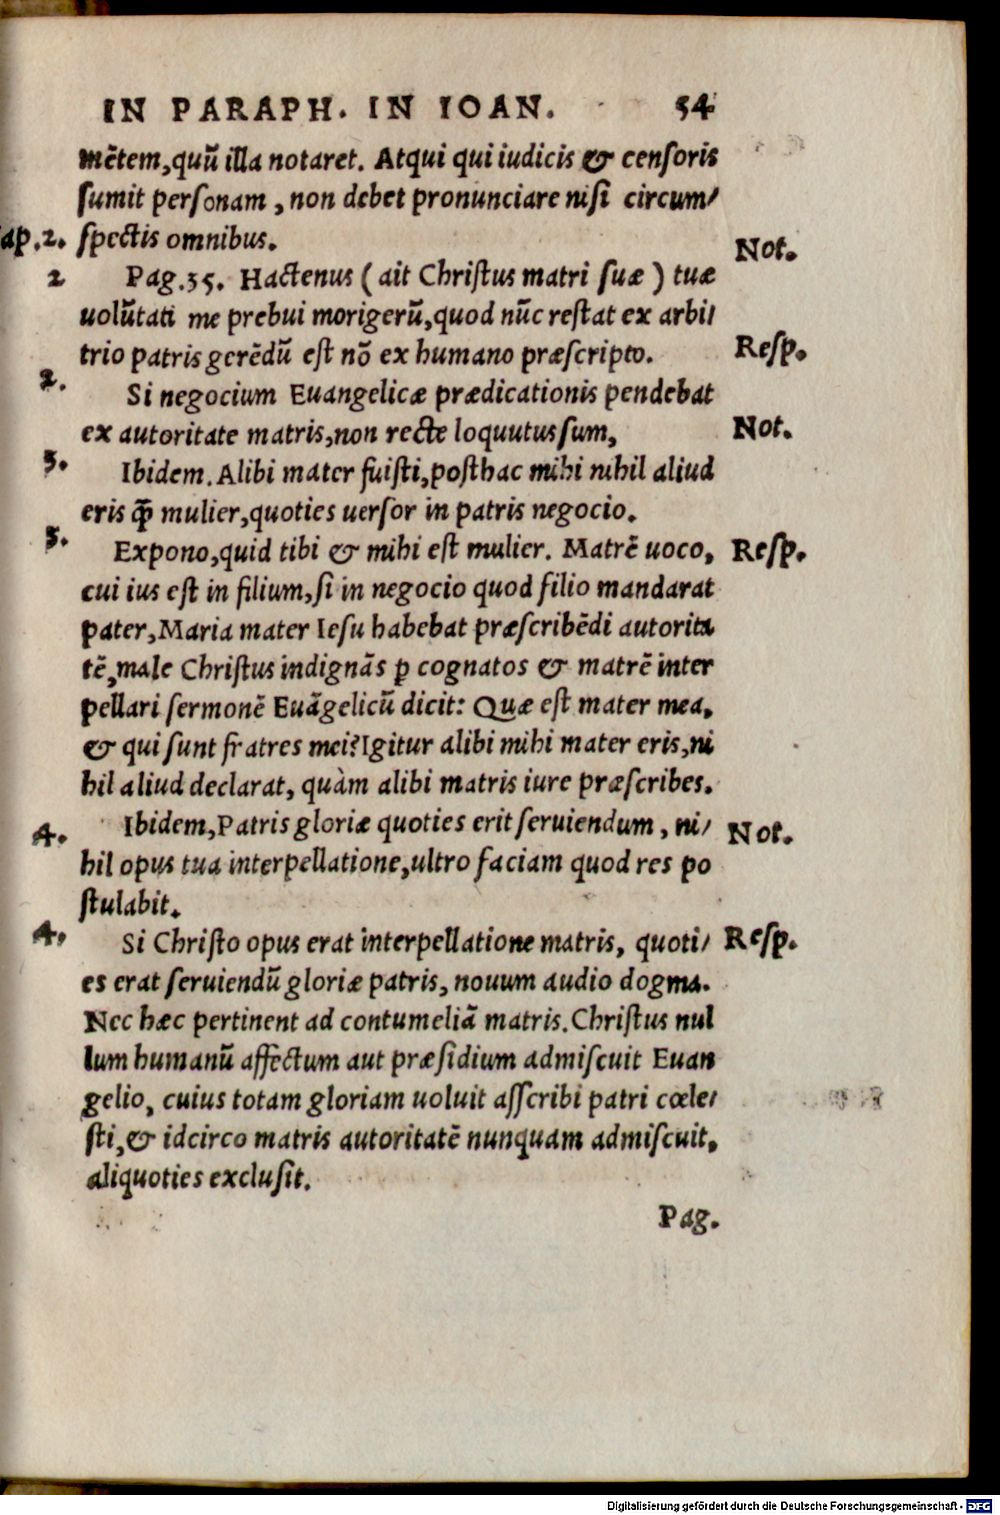 IN PARAPH. IN IOAN. 54
mẽtem,quũ illa notaret. Atqui qui iudicis & censoris
sumit personam, non debet pronunciare nisi circum/
ap.2. spectis omnibus.
Not.
2 Pag.35. Hactenus (ait Christus matri suæ) tuæ
uolũtati me prebui morigerũ,quod nũc restat ex arbi/
trio patris gerẽdũ est nõ ex humano præscripto.
Resp.
2. Si negocium Euangelicæ prædicationis pendebat
ex autoritate matris,non recte loquutus sum,
Not.
3. Ibidem. Alibi mater fuisti,posthac mihi nihil aliud
eris q̃ mulier,quoties uersor in patris negocio.
3. Expono,quid tibi & mihi est mulier. Matrẽ uoco, Resp.
cui ius est in filium,si in negocio quod filio mandarat
pater,Maria mater Iesu habebat præscribẽdi autorita
tẽ,male Christus indignãs ꝑ cognatos & matrẽ inter
pellari sermonẽ Euãgelicũ dicit: Quæ est mater mea,
& qui sunt fratres mei?Igitur alibi mihi mater eris,ni
hil aliud declarat, quàm alibi matris iure præscribes.
4. Ibidem,Patris gloriæ quoties erit seruiendum, ni/ Not.
hil opus tua interpellatione,ultro faciam quod res po
stulabit.
4. Si Christo opus erat interpellatione matris, quoti/ Resp.
es erat seruiendũ gloriæ patris, nouum audio dogma.
Nec hæc pertinent ad contumeliã matris.Christus nul
lum humanũ affectum aut præsidium admiscuit Euan
gelio, cuius totam gloriam uoluit asscribi patri cœle/
sti,& idcirco matris autoritatẽ nunquam admiscuit,
aliquoties exclusit.
Pag.
Digitalisierung gefördert durch die Deutsche Forschungsgemeinschaft - DFG